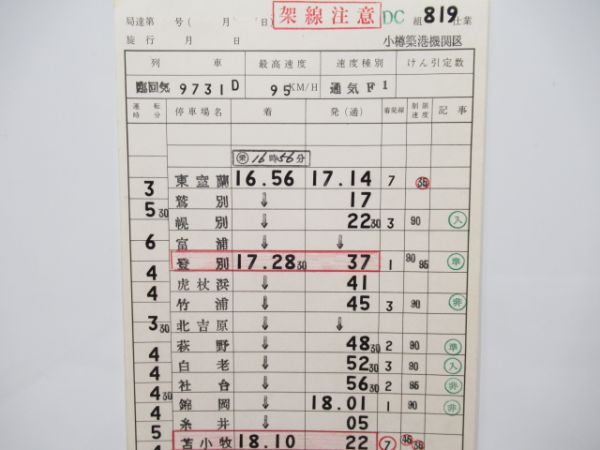 局達第 号( 月 日) 架線注意 DC 組 819 仕業
施行 月 日 小樽築港機関区
列 車 最高速度 速度種別 けん引定数
臨回気 9731D 95KM/H 通気F1
運転時分 停車場名 着 発(通) 着発線 制限速度 記事
16時56分
東室蘭 16.56 17.14 7 35
3
鷲別 ↓ 17
5 30
幌別 ↓ 22 30 3 90 入
富浦 ↓ ↓
6
登別 17.28 30 37 1 90 95 準
4
虎杖浜 ↓ 41
4
竹浦 ↓ 45 3 90 非
北吉原 ↓ ↓
3 30
萩野 ↓ 48 30 2 90 準
4
白老 ↓ 52 30 3 90 入
4
社台 ↓ 56 30 2 95 非
4 30
錦岡 ↓ 18.01 1 90 非
4
糸井 ↓ 05
5
苫小牧 18.10 22 7
4